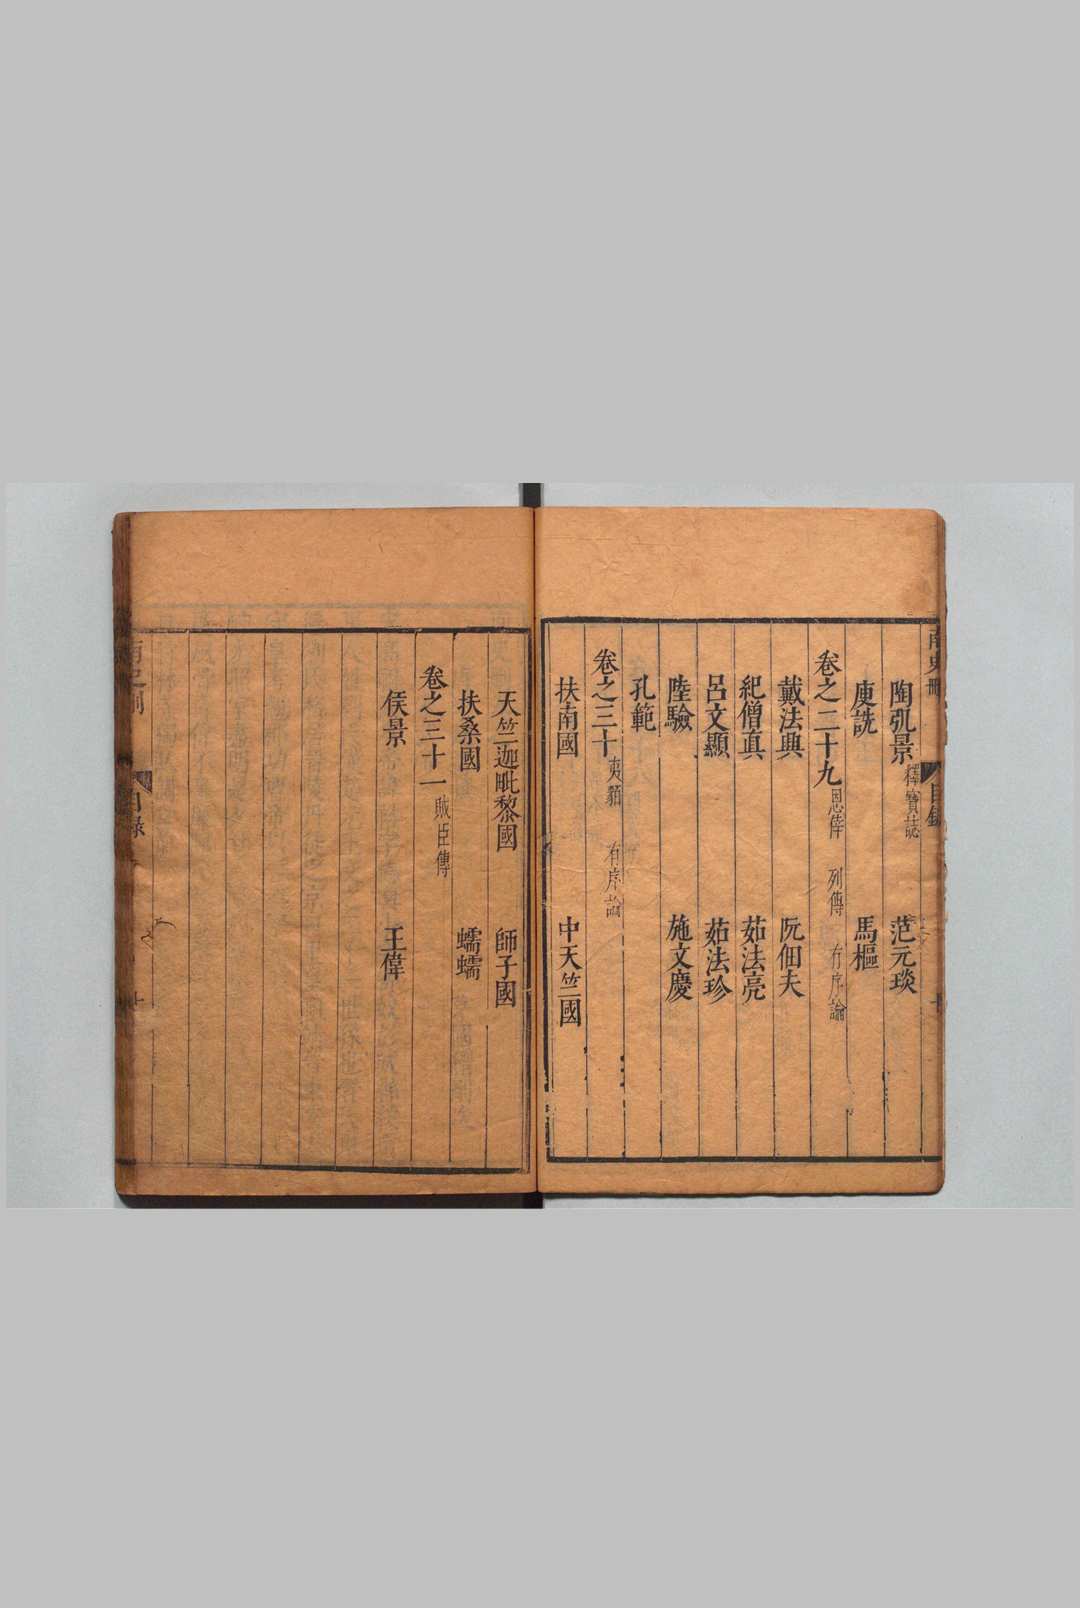 陶弘景 釋寶誌 范元琰
庾詵 馬樞
卷之二十九 恩倖 列傳 有序論
戴法興 阮佃夫
紀僧真 茹法亮
呂文顯 茹法珍
陸驗 施文慶
孔範
卷之三十 夷貊 有序論
扶南國 中天竺國
天竺迦毗黎國 師子國
扶桑國 蠕蠕
卷之三十一 賊臣傳
侯景 王偉
南史刪 目錄